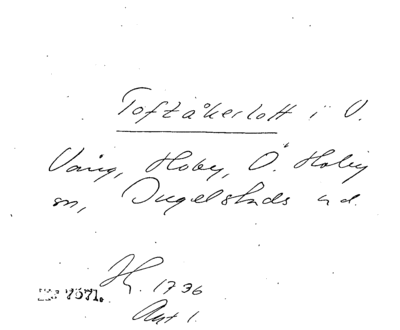 Toftåkerlott i V.
Vång, Hoby, Ö. Hoby
sn, Ingelstads hd.
Hg. 1736
7571.
Akt 1.